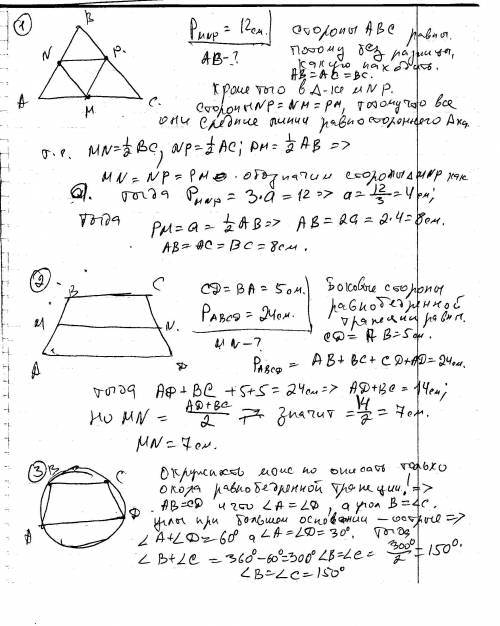 1
B
N
P
A
M
C
P MNP = 12 см.
AB-?
стороны ABC равны.
Потому без разницы,
какую находить.
AB = AC = BC.
Кроме того в Δ-ке MNP.
стороны NP = NM = PM, потому что все
они средние линии равностороннего Δ-ка.
т.е. MN = 1/2 BC, NP = 1/2 AC; PM = 1/2 AB =>
MN = NP = PM обозначим стороны Δ MNP как
a. тогда P MNP = 3·a = 12 => a = 12/3 = 4 см;
тогда PM = a = 1/2 AB => AB = 2a = 2·4 = 8 см.
AB = AC = BC = 8 см.
2
B
C
M
N
A
D
CD = BA = 5 см.
P ABCD = 24 см.
MN-?
Боковые стороны
равнобедренной
трапеции равны.
CD = AB = 5 см.
P ABCD = AB + BC + CD + AD = 24 см.
тогда AD + BC + 5 + 5 = 24 см => AD + BC = 14 см;
но MN = AD+BC/2 значит = 14/2 = 7 см.
MN = 7 см.
3
B
C
A
D
Окружность можно описать только
около равнобедренной трапеции! =>
AB = CD и что ∠A = ∠D, а угол B = ∠C.
углы при большем основании — острые =>
∠A + ∠D = 60° а ∠A = ∠D = 30°. тогда
∠B + ∠C = 360° - 60° = 300° ∠B = ∠C = 300°/2 = 150°.
∠B = ∠C = 150°